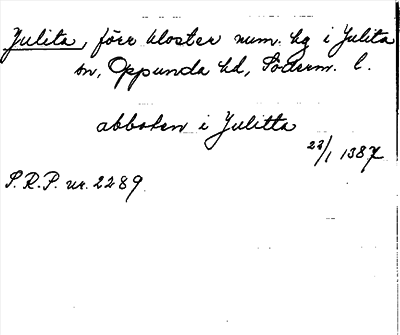 Julita, förr kloster num. hg i Julita
sn, Oppunda hd, Söderm. l.
abboten i Julitta
22/1 1387
S.R.P. nr. 2289